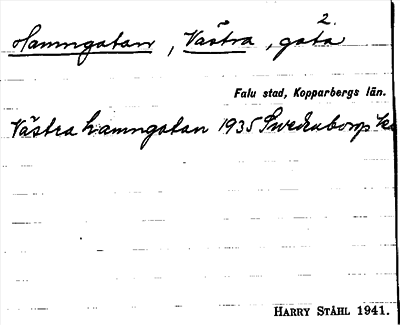 Hamngatan, Västra, gata 2.
Falu stad, Kopparbergs län.
Västra hamngatan 1935 Swedenborgs
HARRY STÅHL 1941.